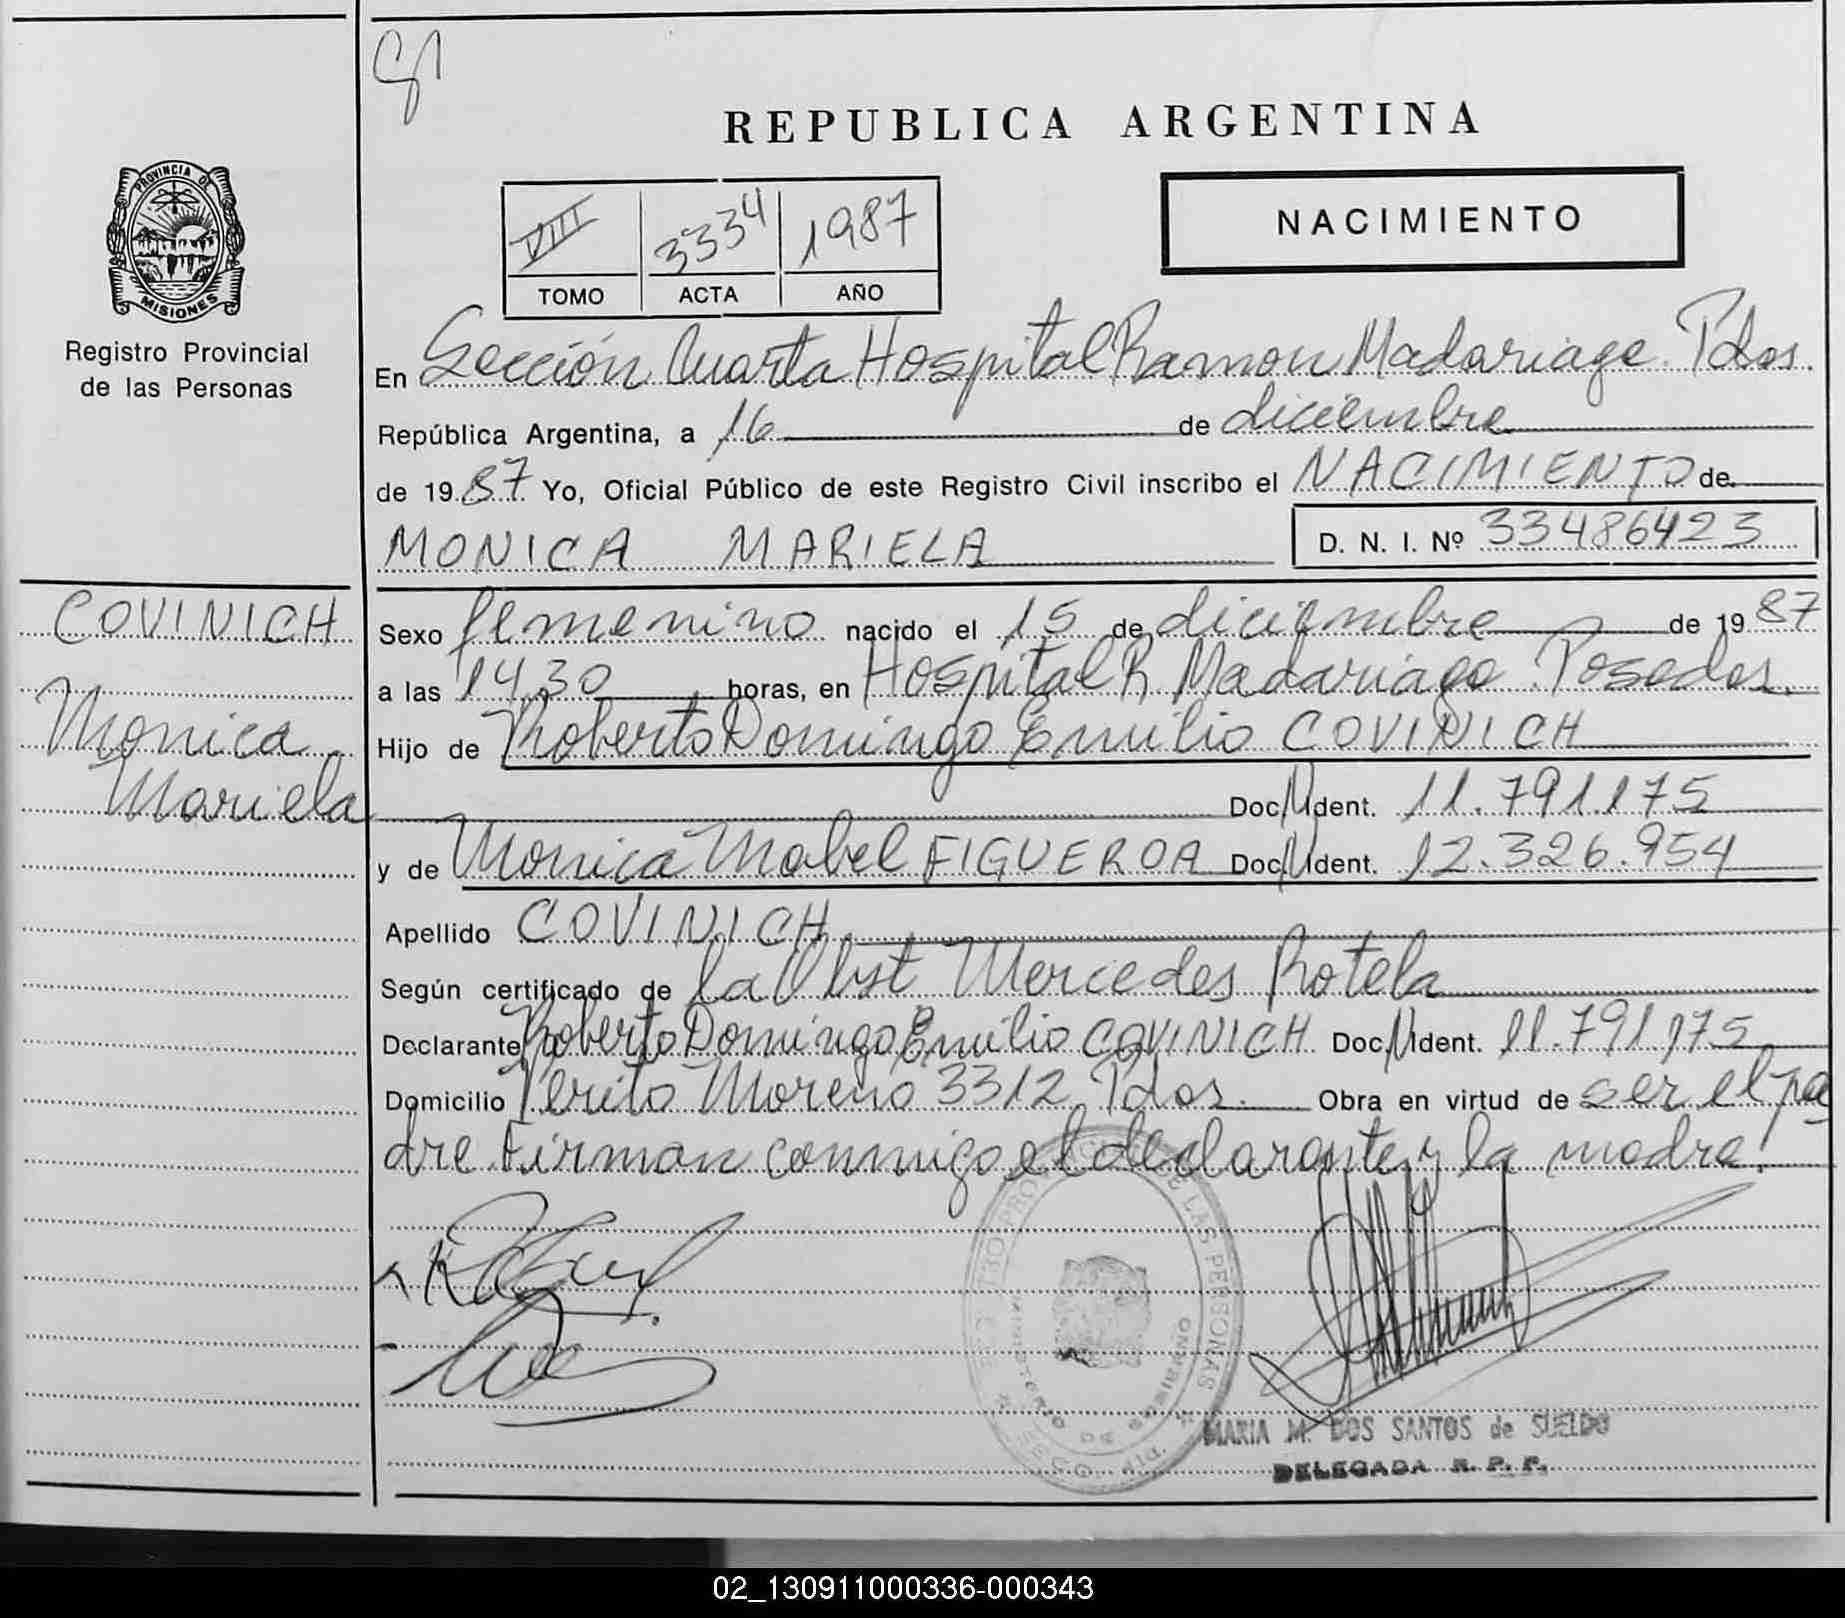 REPUBLICA ARGENTINA
PROVINCIA DE
MISIONES
Registro Provincial
de las Personas
VIII 3334 1987
TOMO ACTA AÑO
NACIMIENTO
En Sección Cuarta Hospital Ramon Madariaga. Pdas.
República Argentina, a 16 de diciembre
de 19 87 Yo, Oficial Público de este Registro Civil inscribo el NACIMIENTO de
MONICA MARIELA D. N. I. Nº 33486423
COVINICH
Monica
Mariela
Sexo femenino nacido el 15 de diciembre de 19 87
a las 14,30 horas, en Hospital R. Madariaga. Posadas.
Hijo de Roberto Domingo Emilio COVINICH
Doc. N Ident. 11.791.175
y de Monica Mabel FIGUEROA Doc. N Ident. 12.326.954
Apellido COVINICH
Según certificado de la Obst. Mercedes Rotela
Declarante Roberto Domingo Emilio COVINICH Doc. N Ident. 11.791.175
Domicilio Perito Moreno 3312 Pdas. Obra en virtud de ser el pa
dre. Firman conmigo el declarante y la madre.
MARIA M. DOS SANTOS de SUELDO
DELEGADA R. P. P.
02_130911000336-000343